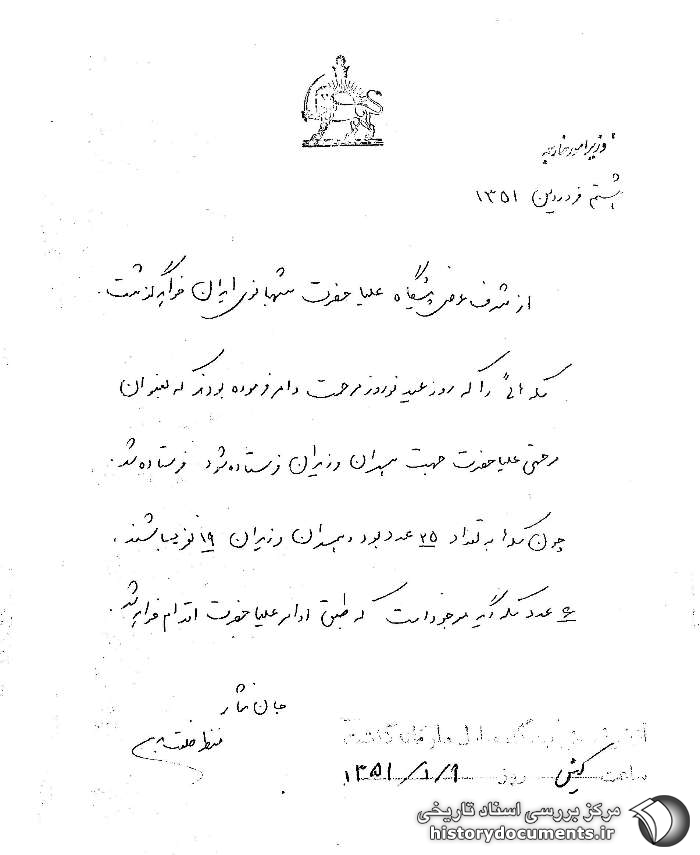 وزیر امور خارجه
هشتم فروردین ۱۳۵۱
از شرف عرض پیشگاه علیا حضرت شهبانوی ایران خواهد گذشت.
سکه‌هائی را که روز عید نوروز مرحمت و امر فرموده بودند که بعنوان
مرحمتی علیا حضرت جهت همسران وزیران فرستاده شود فرستاده شد.
چون سکه‌ها به تعداد ۲۵ عدد بود و همسران وزیران ۱۹ نفر میباشند،
۶ عدد سکه دیگر موجود است که طبق اوامر علیا حضرت اقدام خواهد شد.
جان نثار
کیش
ساعت روز ۱۳۵۱/۱/۹
مرکز بررسی اسناد تاریخی
historydocuments.ir